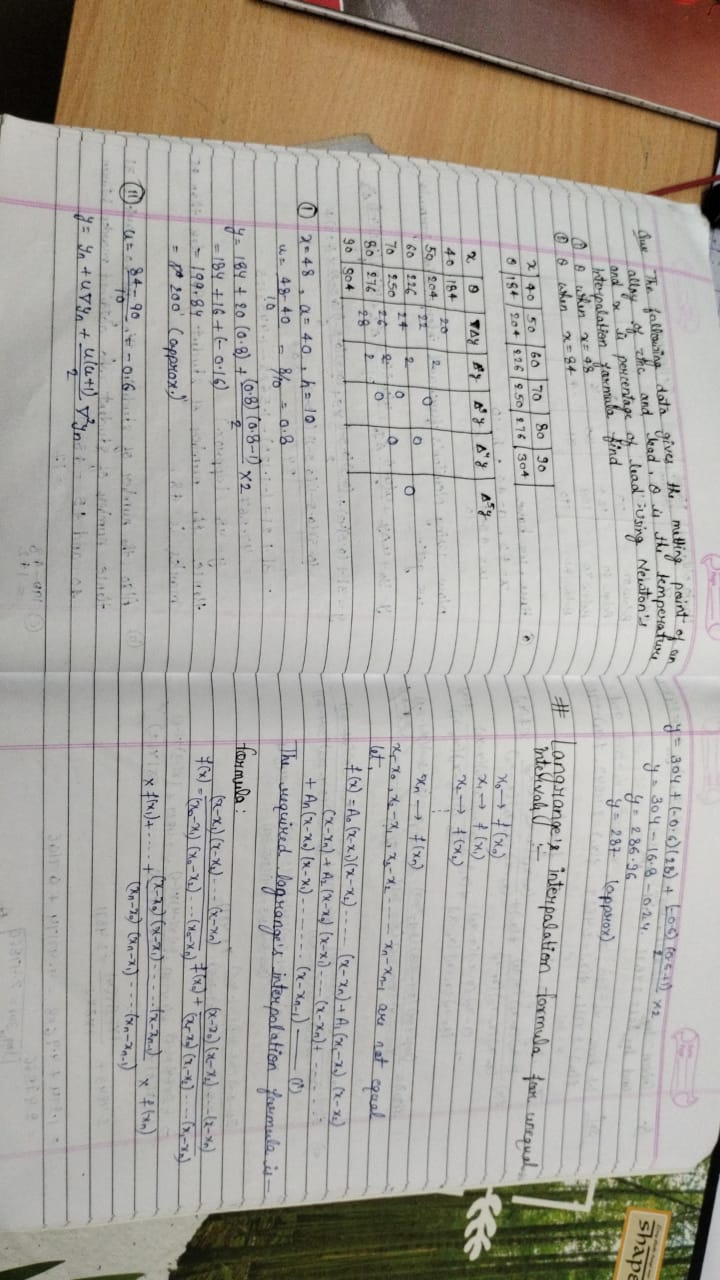 Que The following data gives the melting point of an
alloy of zinc and lead, θ is the temperature
and x is percentage of lead using Newton's
interpolation formula find
① θ when x = 48
② θ when x = 84
x 40 50 60 70 80 90
θ 184 204 226 250 276 304
x θ ∇Δy Δ²y Δ³y Δ⁴y Δ⁵y
40 184
20
50 204 2
22 0
60 226 2 0
24 0 0
70 250 2 0
26 0
80 276 2
28
90 304
① x = 48, a = 40, h = 10
u = 48-40/10 = 8/10 = 0.8
y = 184 + 20 (0.8) + (0.8) (0.8-1)/2 × 2
= 184 + 16 + (-0.16)
= 199.84
= 200 (approx.)
⑪ u = 84-90/10 = -0.6
y = yn + u∇yn + u(u+1)/2 ∇²yn
y = 304 + (-0.6)(28) + (-0.6)(0.6+1)/2 × 2
y = 304 - 16.8 - 0.24
y = 286.96
y = 287 (approx)
shape
# Langrange's interpolation formula for unequal
intervals :-
x₀ → f(x₀)
x₁ → f(x₁)
x₂ → f(x₂)
xn → f(xn)
x₁-x₀, x₂-x₁, x₃-x₂ ..... xn-xn-1 are not equal
let,
f(x) = A₀(x-x₁)(x-x₂) ..... (x-xn) + A₁(x-x₀).(x-x₂)
(x-xn) + A₂(x-x₀)(x-x₁) .... (x-xn) + .......
+ An(x-x₀)(x-x₁) ........ (x-xn-1) — (i)
The required lagrange's interpolation formula is—
formula:
f(x) = (x-x₁)(x-x₂)....(x-xn)/(x₀-x₁)(x₀-x₂)....(x₀-xn) f(x₀) + (x-x₀)(x-x₂).....(x-xn)/(x₁-x₀)(x₁-x₂)....(x₁-xn)
× f(x₁) + ..... + (x-x₀)(x-x₁)......(x-xn-1)/(xn-x₀)(xn-x₁)....(xn-xn-1) × f(xn)